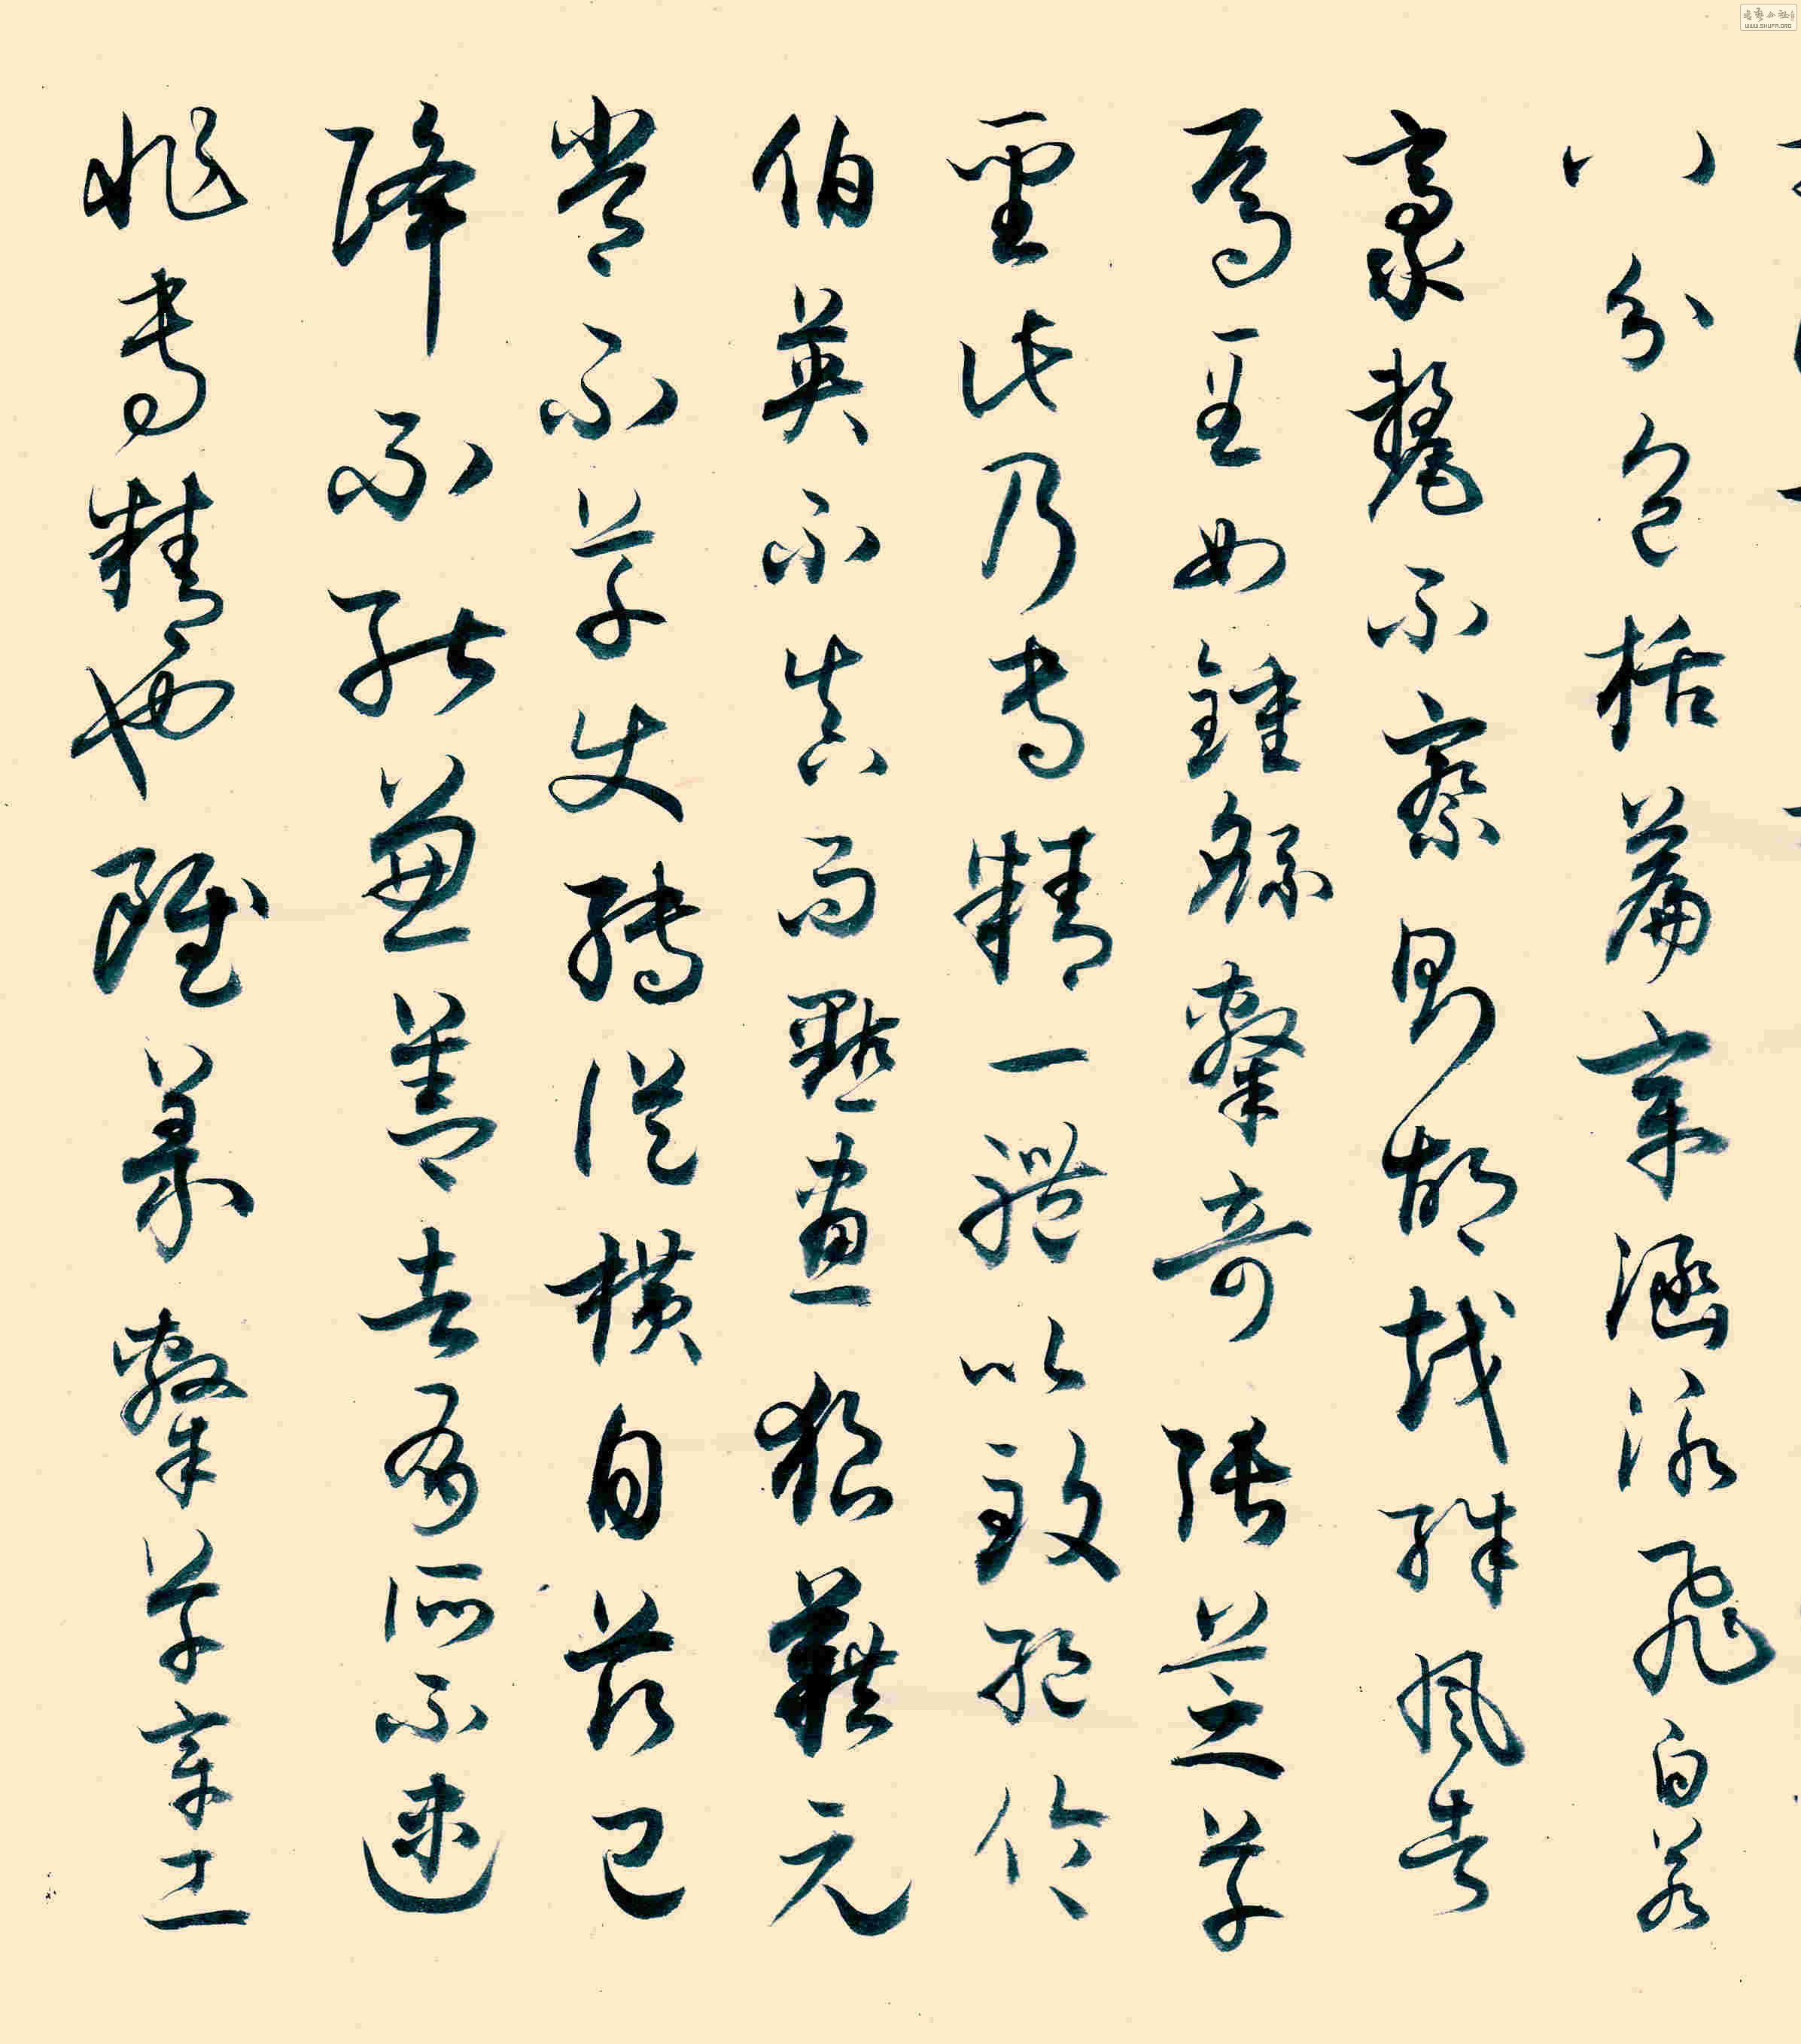 八分包括篇章涵泳飛白若
豪氂不察則胡越殊風者
焉至如鍾繇隸奇張芝草
聖此乃專精一體以致絕倫
伯英不真而點畫狼藉元
常不草使轉從橫自茲已
降不能兼善者有所不逮
非專精也雖篆隸草章工
WWW.SHUFA.ORG